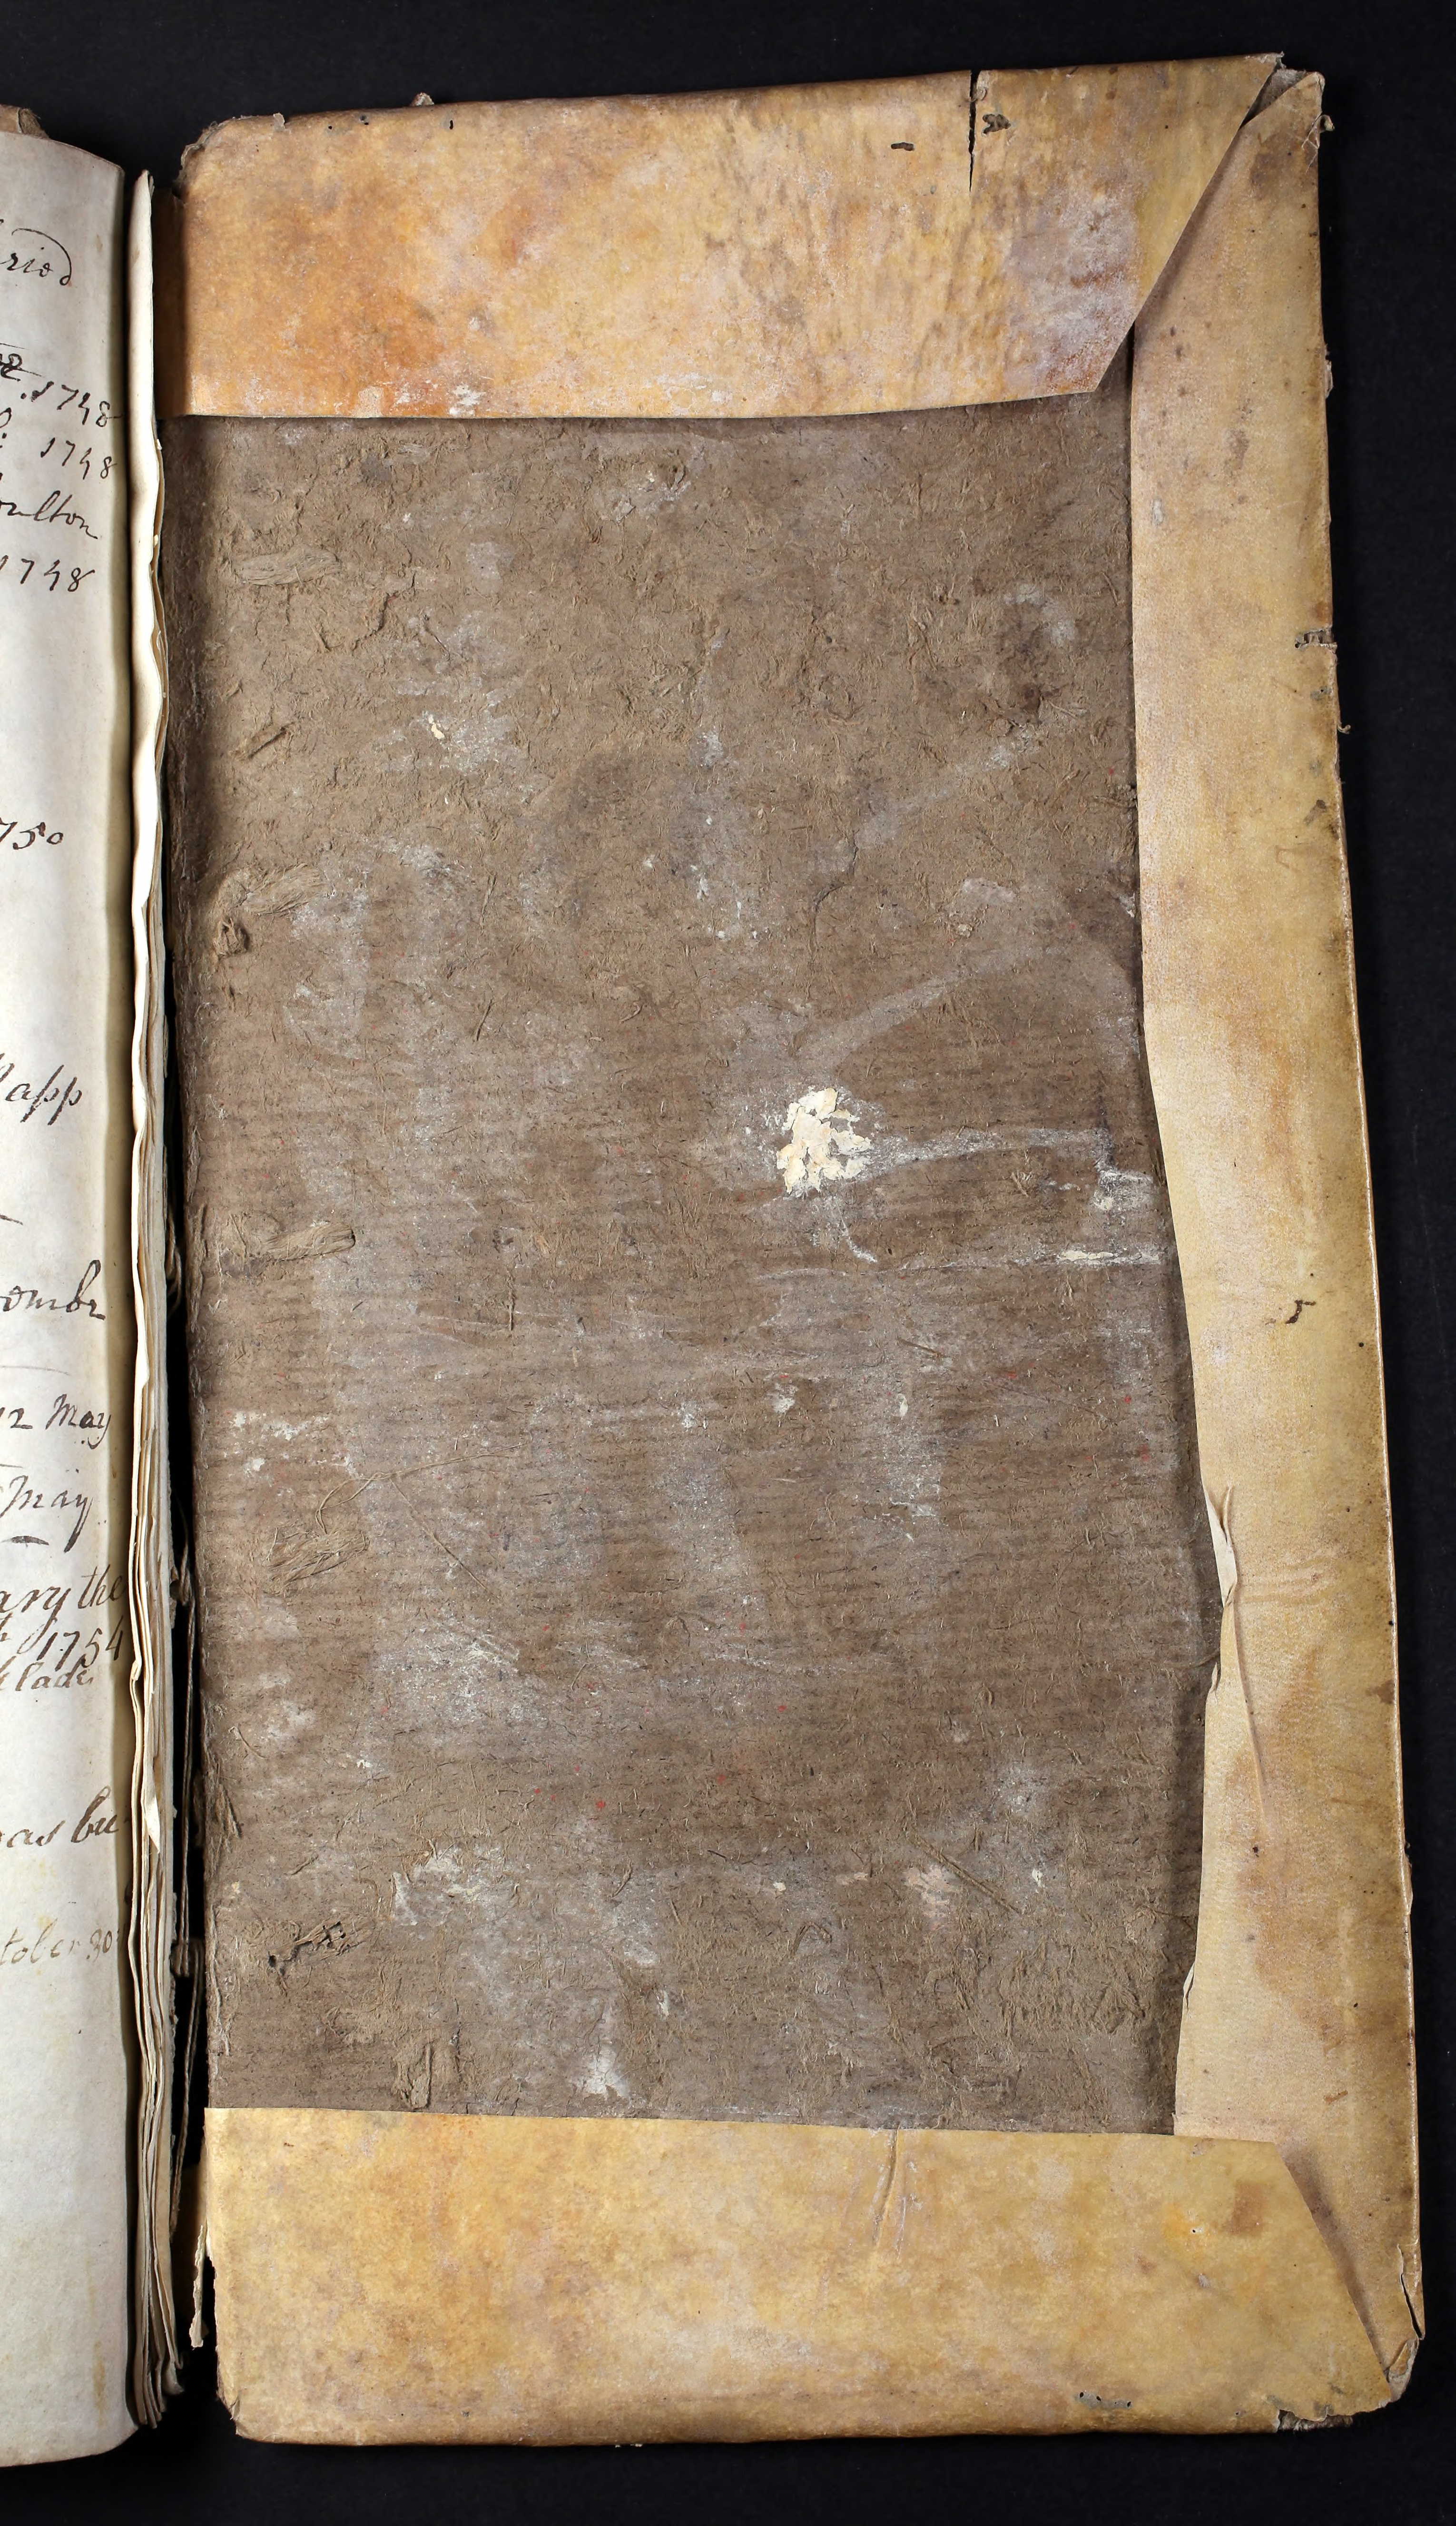 ried
1748
1748
oulton
1748
750
app
ombr
12 May
May
ary the
1754
lade
as bu
tober 30